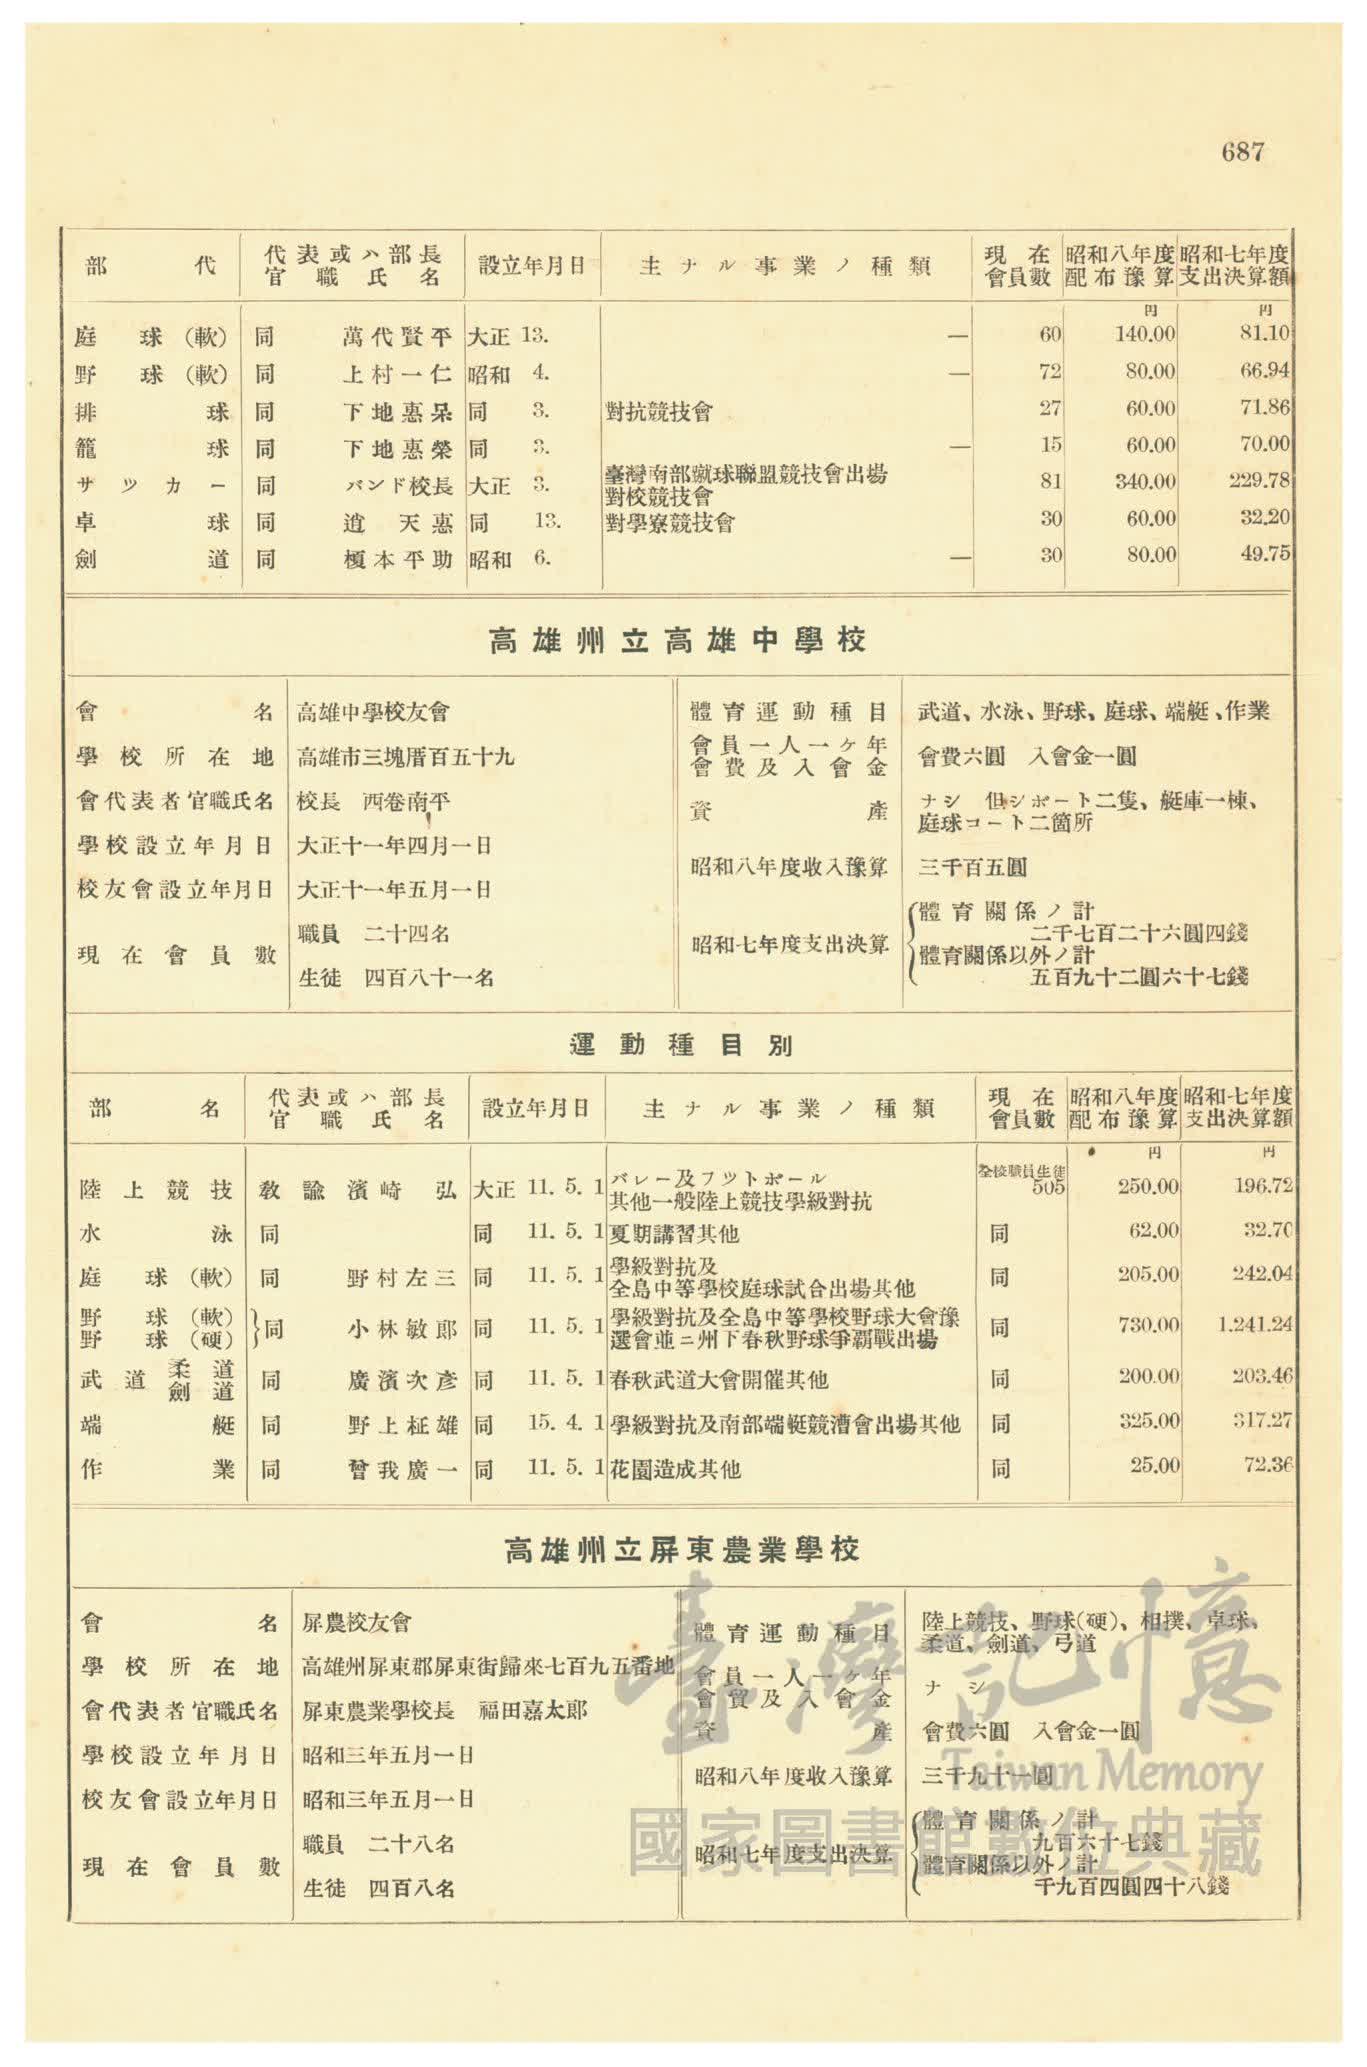 687
部代 代表或ハ部長官職氏名 設立年月日 主ナル事業ノ種類 現在會員數 昭和八年度配布豫算 昭和七年度支出決算額
円 円
庭球(軟) 同 萬代賢平 大正 13. — 60 140.00 81.10
野球(軟) 同 上村一仁 昭和 4. — 72 80.00 66.94
排球 同 下地惠呆 同 3. 對抗競技會 27 60.00 71.86
籠球 同 下地惠榮 同 3. — 15 60.00 70.00
サツカー 同 バンド校長 大正 3. 臺灣南部蹴球聯盟競技會出場 對校競技會 81 340.00 229.78
卓球 同 逍天惠 同 13. 對學寮競技會 30 60.00 32.20
劍道 同 榎本平助 昭和 6. — 30 80.00 49.75
高雄州立高雄中學校
會名 高雄中學校友會
學校所在地 高雄市三塊厝百五十九
會代表者官職氏名 校長 西卷南平
學校設立年月日 大正十一年四月一日
校友會設立年月日 大正十一年五月一日
現在會員數 職員 二十四名
生徒 四百八十一名
體育運動種目 武道、水泳、野球、庭球、端艇、作業
會員一人一ヶ年會費及入會金 會費六圓 入會金一圓
資產 ナシ 但シボート二隻、艇庫一棟、
庭球コート二箇所
昭和八年度收入豫算 三千百五圓
昭和七年度支出決算 體育關係ノ計
二千七百二十六圓四錢
體育關係以外ノ計
五百九十二圓六十七錢
運動種目別
部名 代表或ハ部長官職氏名 設立年月日 主ナル事業ノ種類 現在會員數 昭和八年度配布豫算 昭和七年度支出決算額
円 円
陸上競技 敎諭 濱崎弘 大正 11. 5. 1 バレー及フツトボール 其他一般陸上競技學級對抗 全校職員生徒 505 250.00 196.72
水泳 同 同 11. 5. 1 夏期講習其他 同 62.00 32.70
庭球(軟) 同 野村左三 同 11. 5. 1 學級對抗及 全島中等學校庭球試合出場其他 同 205.00 242.04
野球(軟) 野球(硬) 同 小林敏郎 同 11. 5. 1 學級對抗及全島中等學校野球大會豫選會並ニ州下春秋野球爭覇戰出場 同 730.00 1.241.24
武道 柔道 劍道 同 廣濱次彥 同 11. 5. 1 春秋武道大會開催其他 同 200.00 203.46
端艇 同 野上柾雄 同 15. 4. 1 學級對抗及南部端艇競漕會出場其他 同 325.00 317.27
作業 同 曾我廣一 同 11. 5. 1 花園造成其他 同 25.00 72.36
高雄州立屏東農業學校
會名 屏農校友會
學校所在地 高雄州屏東郡屏東街歸來七百九五番地
會代表者官職氏名 屏東農業學校長 福田嘉太郎
學校設立年月日 昭和三年五月一日
校友會設立年月日 昭和三年五月一日
現在會員數 職員 二十八名
生徒 四百八名
體育運動種目 陸上競技、野球(硬)、相撲、卓球、
柔道、劍道、弓道
會員一人一ヶ年會貿及入會金 ナシ
資產 會費六圓 入會金一圓
昭和八年度收入豫算 三千九十一圓
昭和七年度支出決算 體育關係ノ計
九百六十七錢
體育關係以外ノ計
千九百四圓四十八錢
臺灣記憶
Taiwan Memory
國家圖書館數位典藏